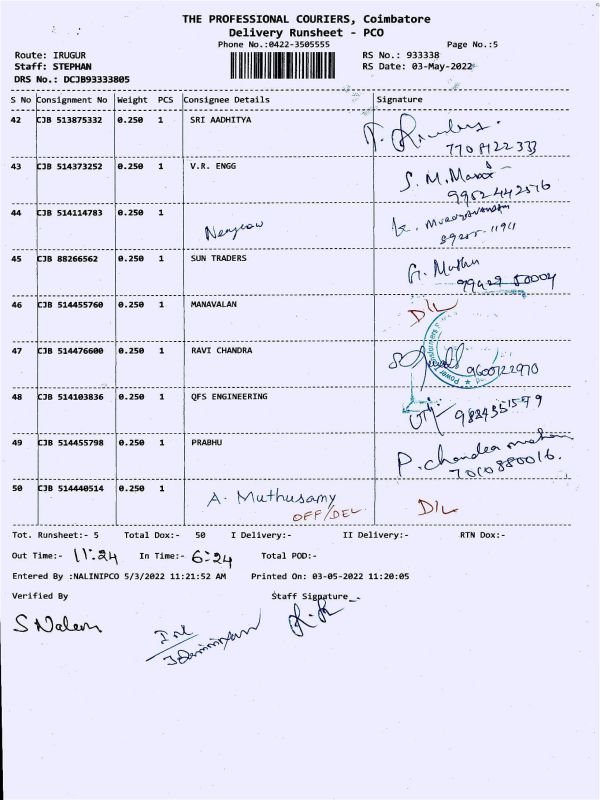 THE PROFESSIONAL COURIERS, Coimbatore
Delivery Runsheet - PCO
Phone No.:0422-3505555 Page No.:5
Route: IRUGUR RS No.: 933338
Staff: STEPHAN RS Date: 03-May-2022
DRS No.: DCJB93333805
S No Consignment No Weight PCS Consignee Details Signature
42 CJB 513875332 0.250 1 SRI AADHITYA
7708122333
43 CJB 514373252 0.250 1 V.R. ENGG S.M.Mani
9952442576
44 CJB 514114783 0.250 1
45 CJB 88266562 0.250 1 SUN TRADERS G. Muthu
99429 50004
46 CJB 514455760 0.250 1 MANAVALAN D/L
47 CJB 514476600 0.250 1 RAVI CHANDRA 9600722970
48 CJB 514103836 0.250 1 QFS ENGINEERING
49 CJB 514455798 0.250 1 PRABHU P. chandra mohan
7010880016.
50 CJB 514440514 0.250 1 A. Muthusamy D/L
OFF/DEL
Tot. Runsheet:- 5 Total Dox:- 50 I Delivery:- II Delivery:- RTN Dox:-
Out Time:- 11:24 In Time:- 6:24 Total POD:-
Entered By :NALINIPCO 5/3/2022 11:21:52 AM Printed On: 03-05-2022 11:20:05
Verified By Staff Signature